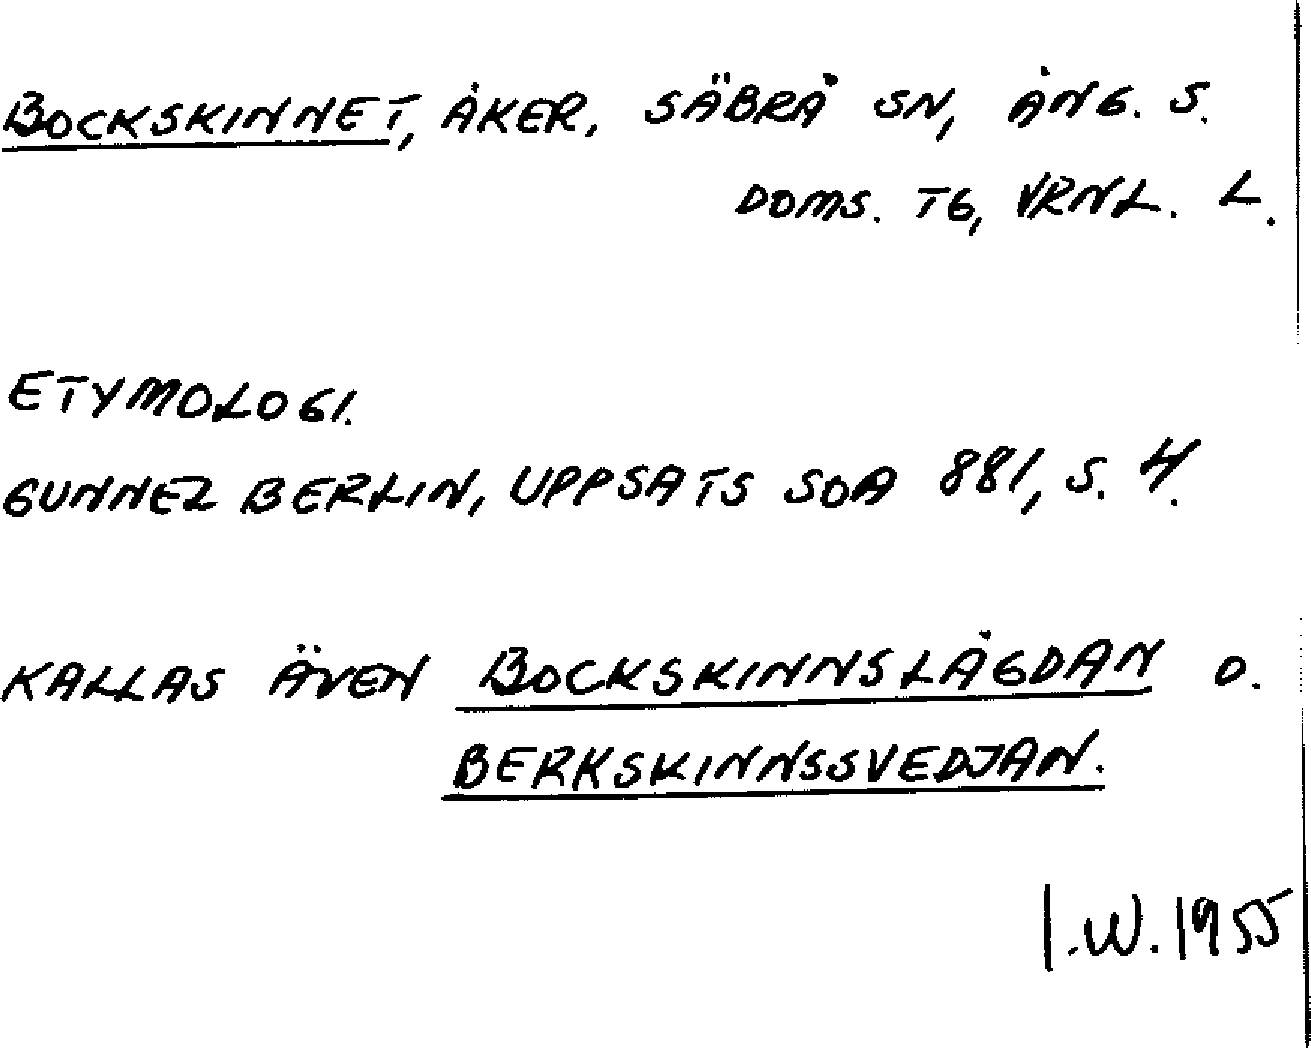 BOCKSKINNET, ÅKER, SÄBRÅ SN, ÅNG. S.
DOMS. TG, VRNL. L.
ETYMOLOGI.
GUNNEL BERLIN, UPPSATS SOA 881, S. 4.
KALLAS ÄVEN BOCKSKINNSLÅGDAN O.
BERKSKINNSSVEDJAN.
I.W. 1955